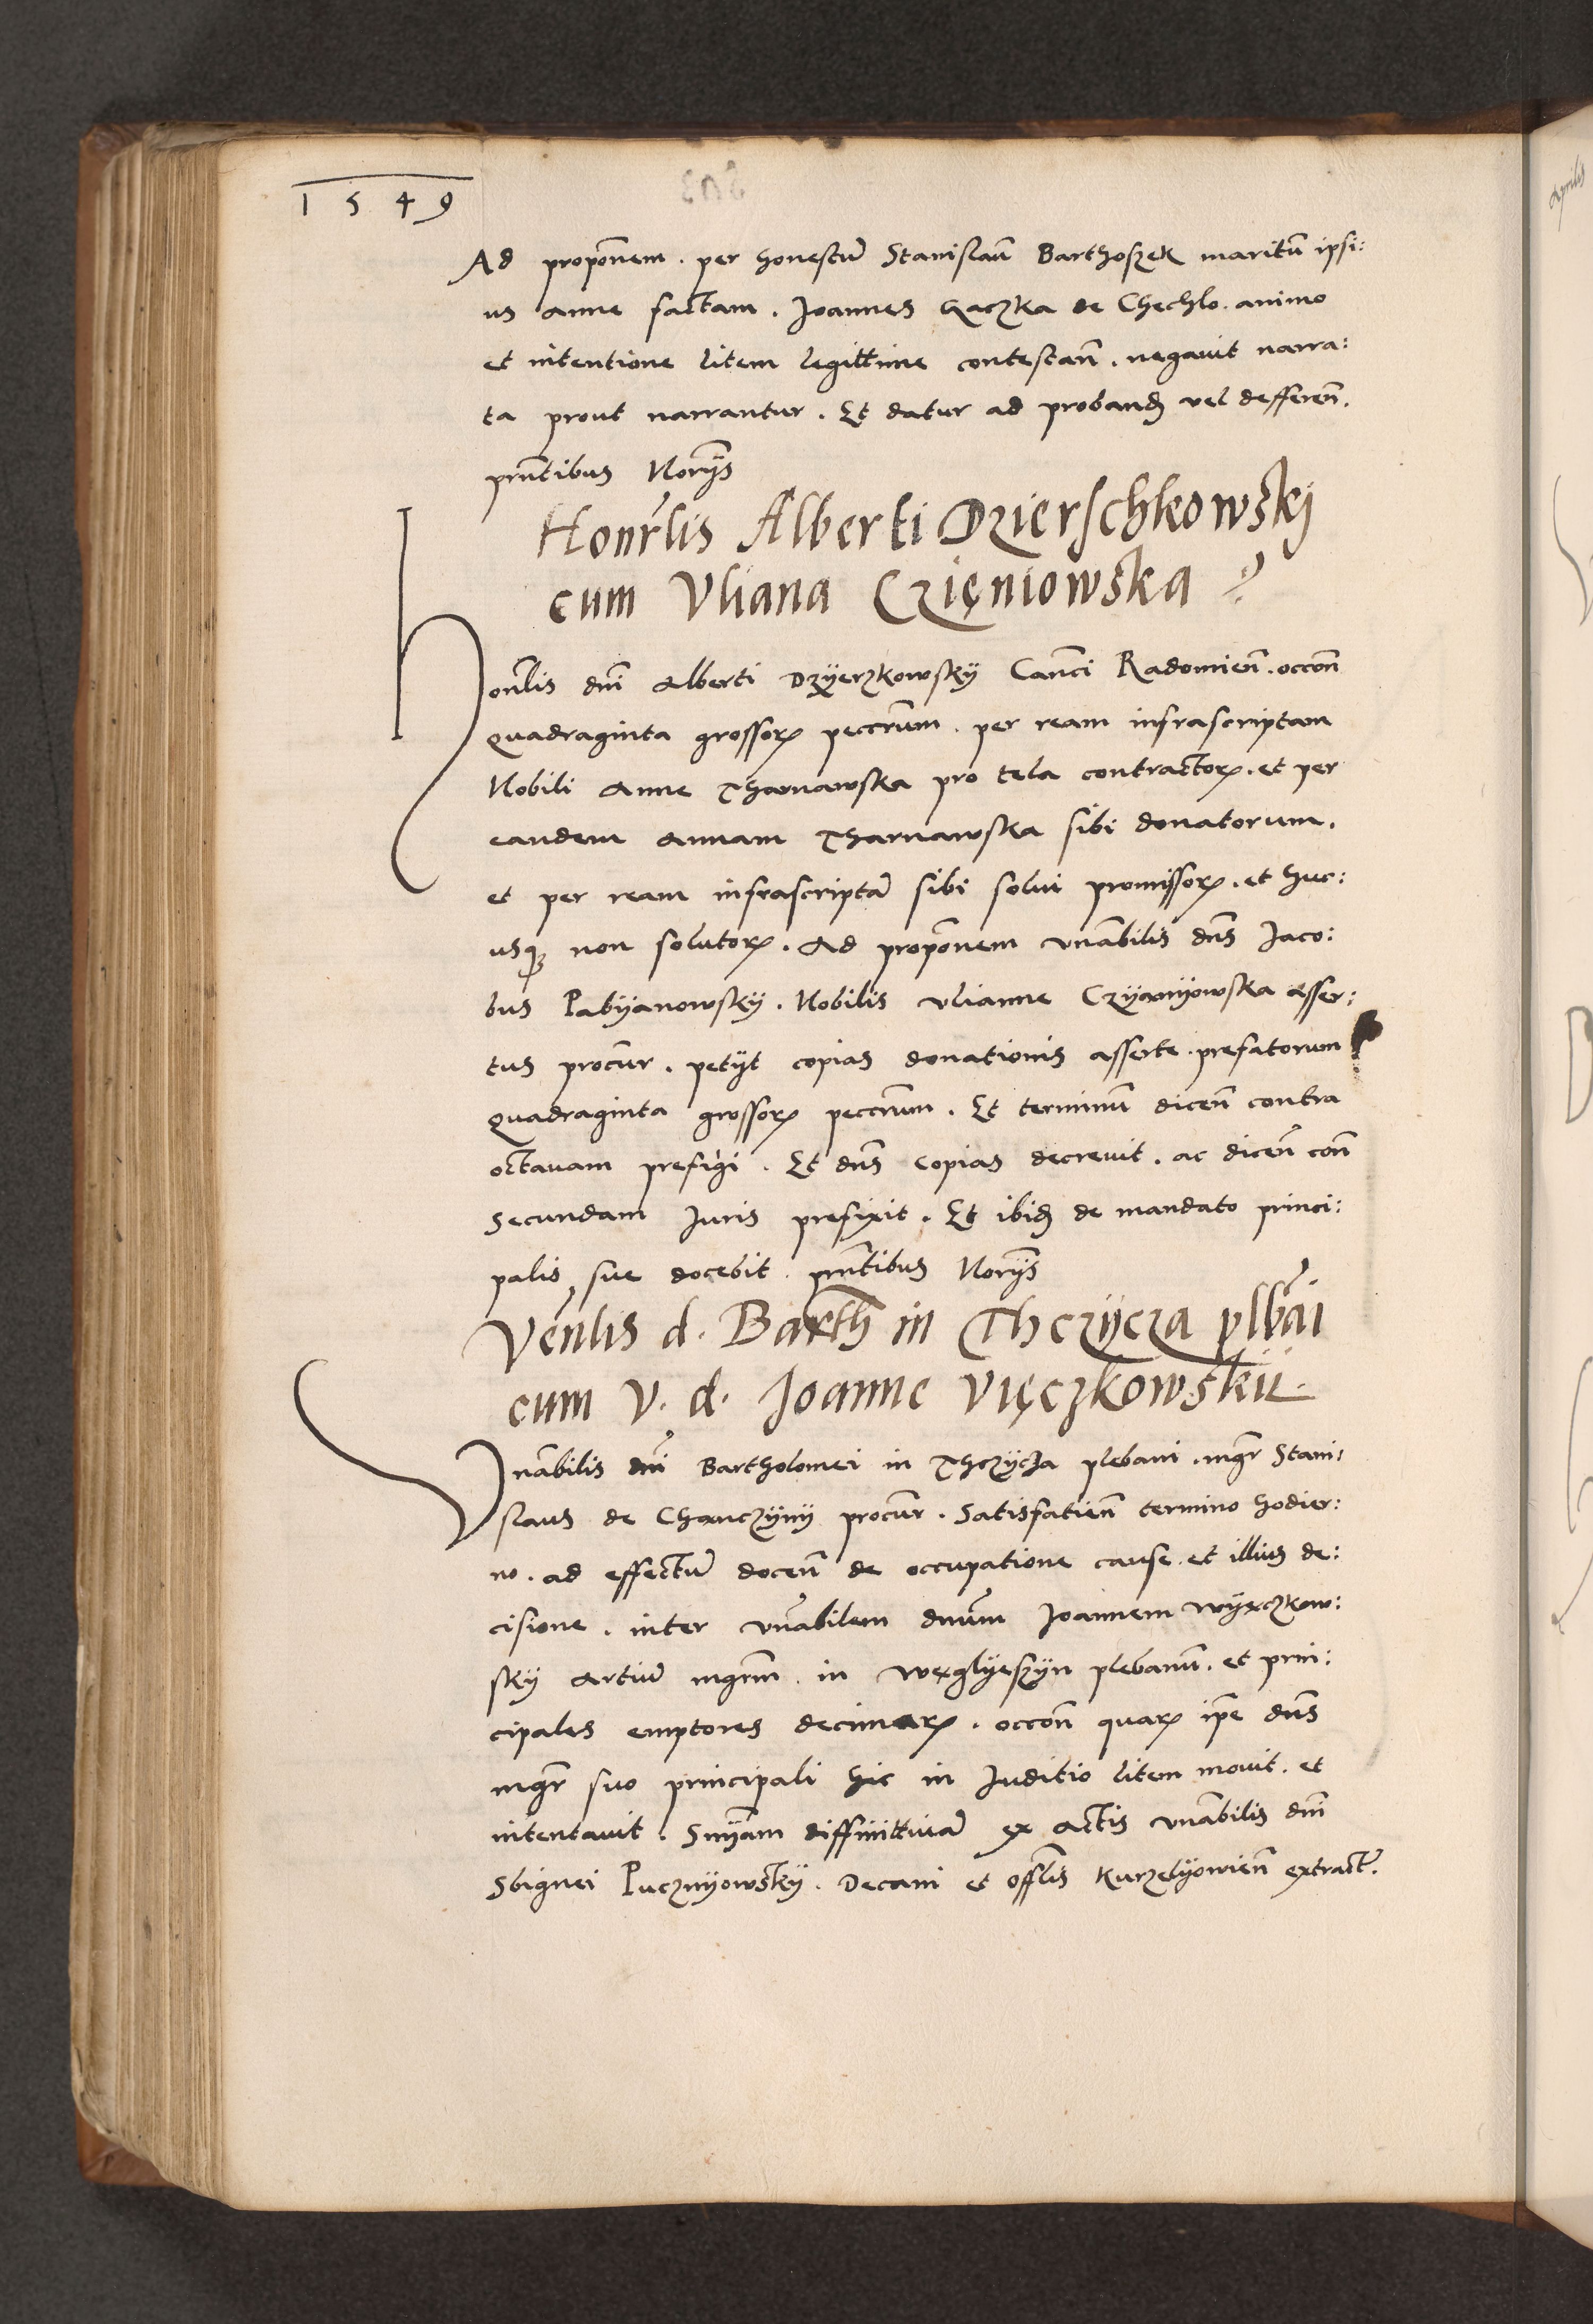 1549
Ad propoñem . per honestũ Stanislaũ Barthoszek maritũ ipsi:
us Anne factam . Joannes Kaczka de Chechlo . animo
et intentione litem legittime contestañ . negavit narra:
ta prout narrantur . Et datur ad proband vel deffereñ .
pñtibus Norijs
Honrlis Alberti Dzierschkowskj
cum Vliana Czięniowska
Honlis dni Alberti Dzyerzkowsky Canci Radomieñ . occoñ
quadraginta grossorꝝ peccrum . per ream infrascriptam
Nobili Anne Tharnawska pro tela contractorꝝ . et per
eandem Annam Tharnawska sibi donatorum .
et per ream infrascriptã sibi solui promissorꝝ . et huc:
usqꝫ non solutorꝝ . Ad propoñem vnãbilis dñs Jaco:
bus Pabyanowsky . Nobilis Vlianne Czyanyowska asser:
tus procur . petijt copias donationis asserte . prefatorum
quadraginta grossorꝝ peccrum . Et terminũ diceñ contra
octauam prefigi . Et dñs copias decrevit . ac diceñ coñ
secundam Juris prefixit . Et ibid de mandato princi:
palis sue docebit . pñtibus Norijs
Venlis d. Barth in Thczycza plbãi
cum V. d. Joanne Vięczkowskii
Vnãbilis dñi Bartholomei in Thczycza plebani . mgr Stani:
slaus de Chanczyny procur . Satisfatieñ termino hodier:
no . ad effectũ doceñ de occupatione cause . et illius de:
cisione . inter vnãbilem dnum Joannem Wyęczkow:
sky Artiũ mgrm . in Węglyeszyn plebanũ . et prin:
cipales emptores decimarꝝ . occoñ quarꝝ ipe dñs
mgr suo principali hic in Juditio litem mouit . et
intentauit . Snijam diffinittiuã ex actis vnãbilis dñi
Sbignei Pucznyowsky . Decani et offlis Kurzelyowieñ extract .